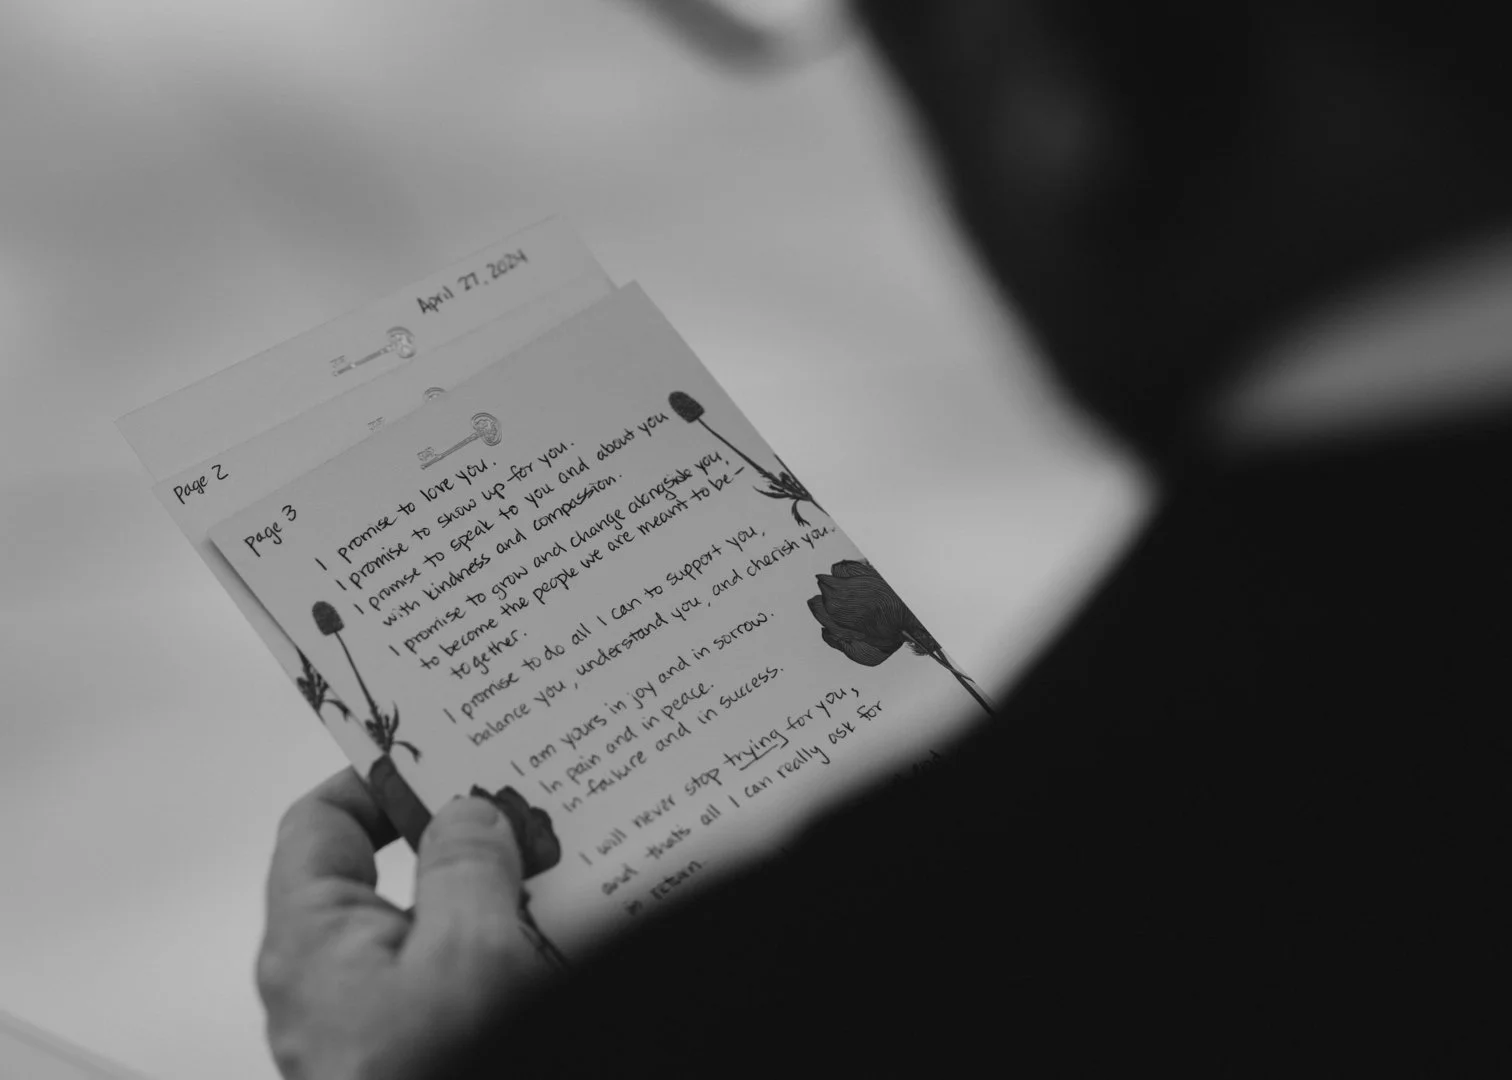 April 27, 2024
Page 2
Page 3
I promise to love you.
I promise to show up for you.
I promise to speak to you and about you
with kindness and compassion.
I promise to grow and change alongside you,
to become the people we are meant to be–
together.
I promise to do all I can to support you,
balance you, understand you, and cherish you.
I am yours in joy and in sorrow.
In pain and in peace.
In failure and in success.
I will never stop trying for you,
and thats all I can really ask for
in return.